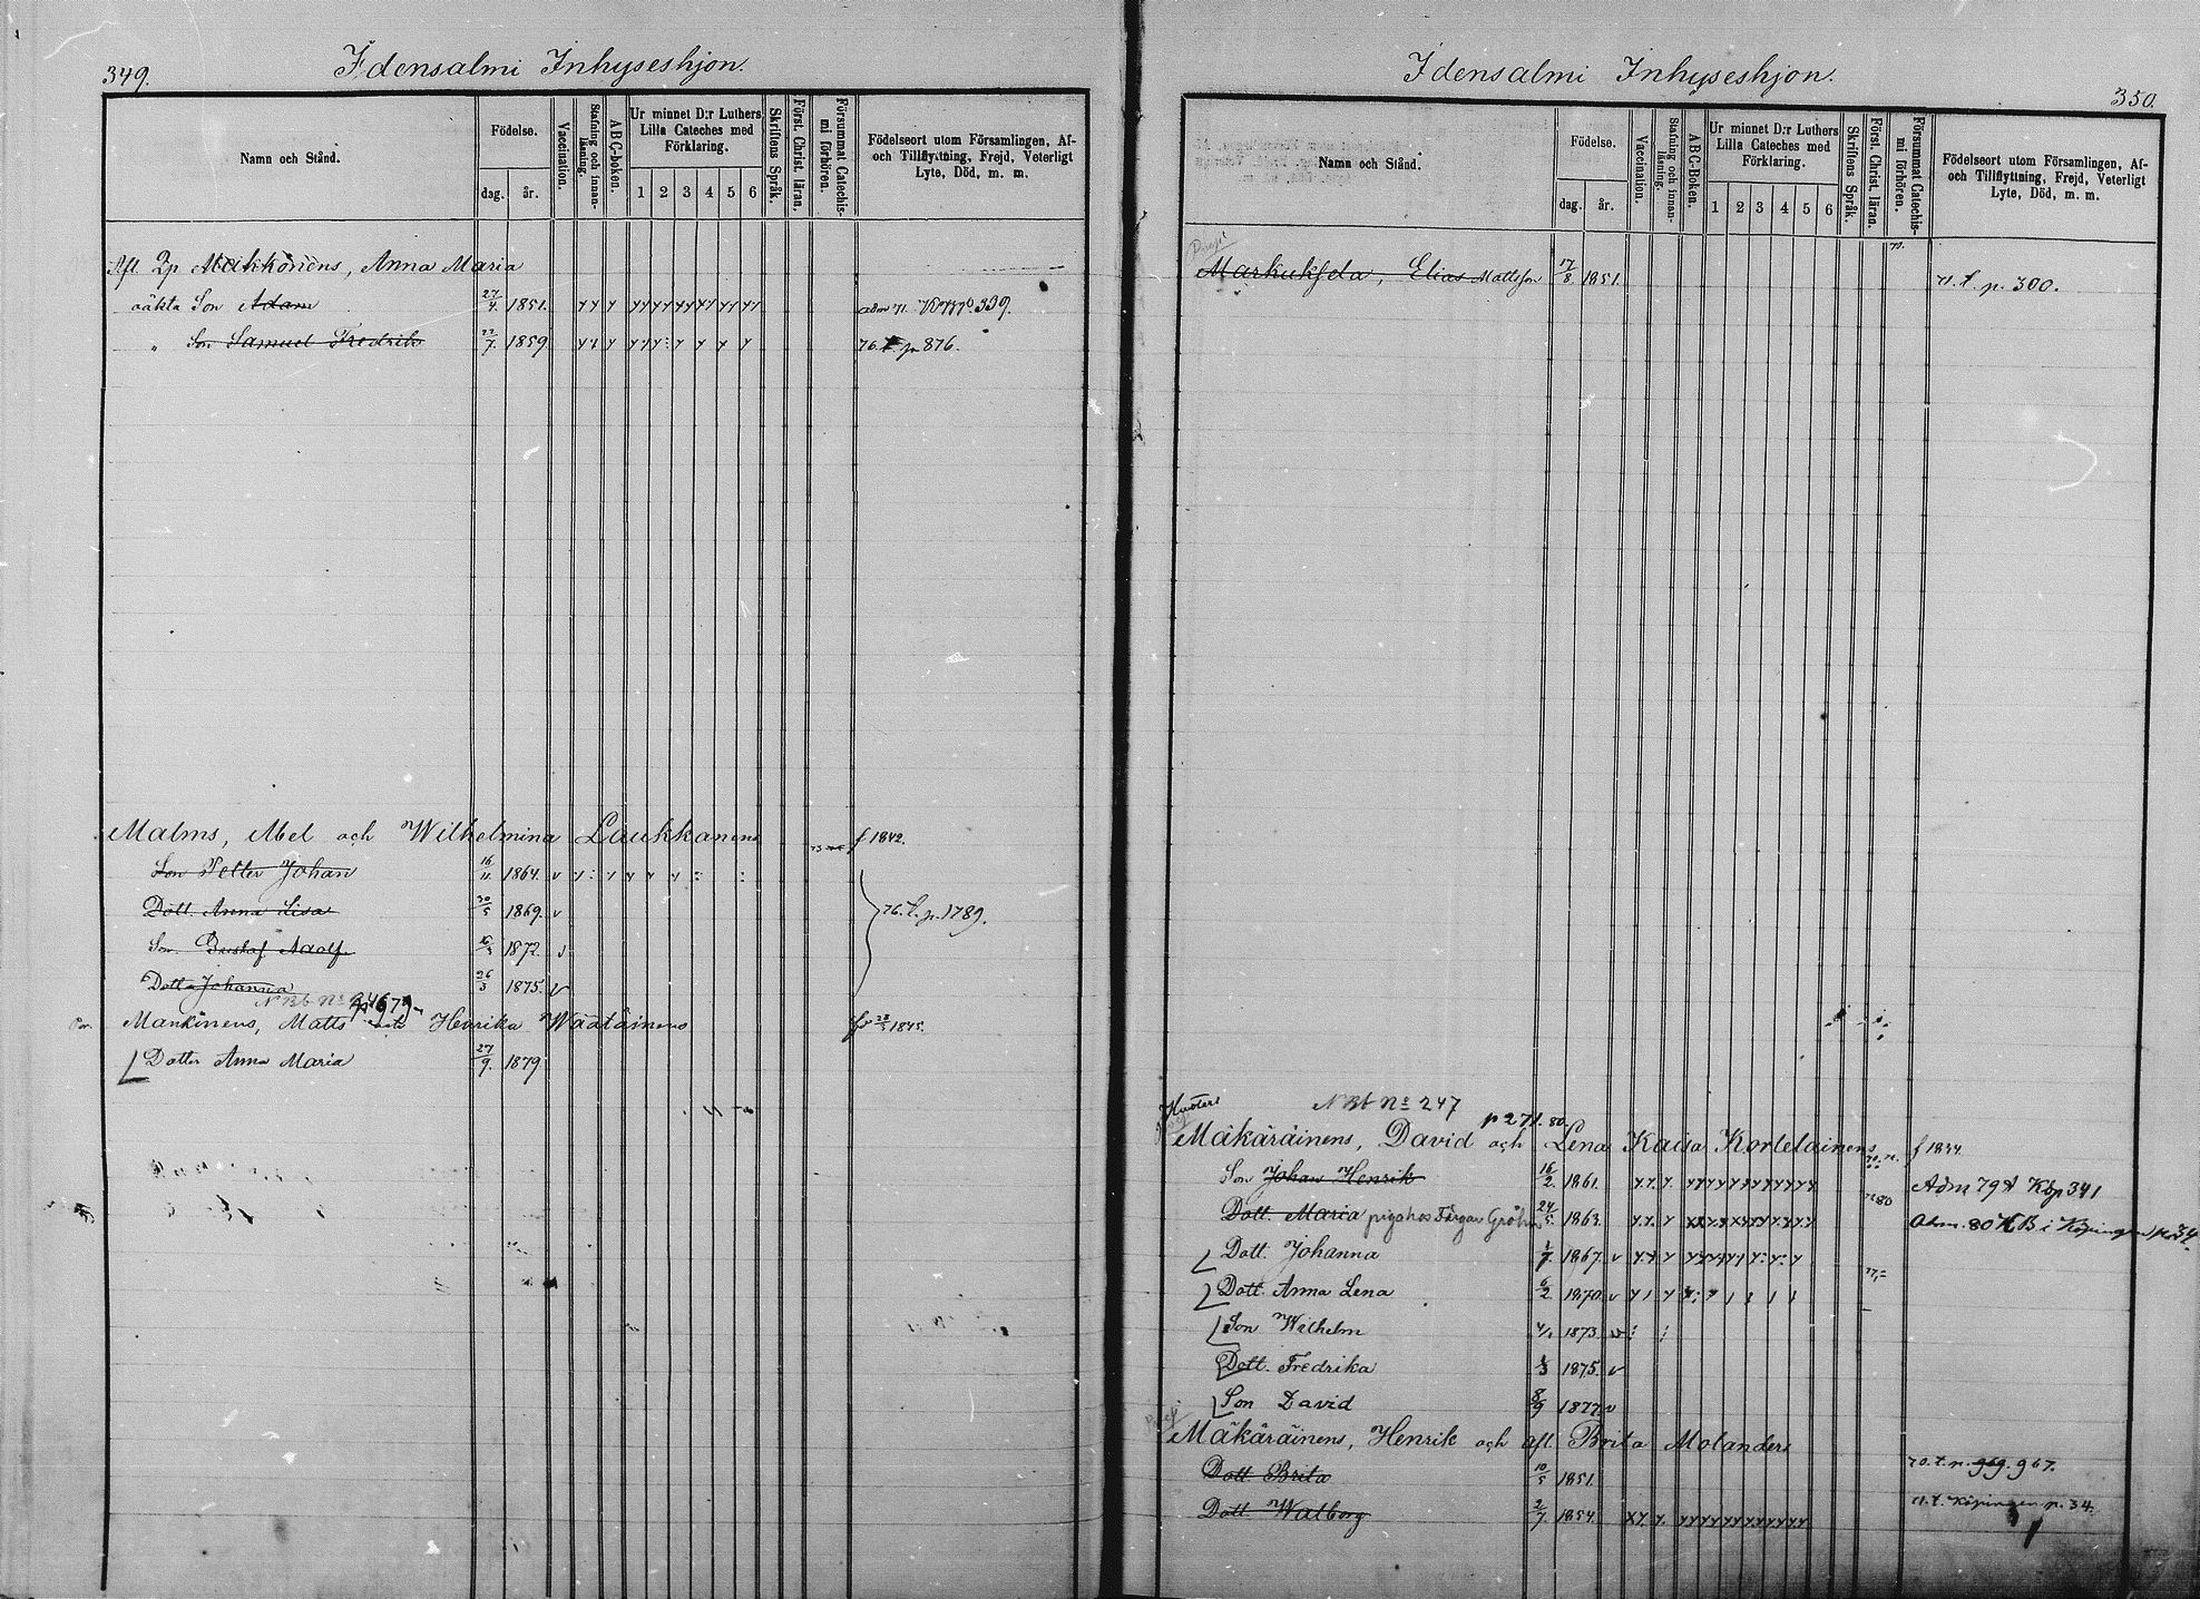 349.
Idensalmi Inhyseshjon.
Namn och Stånd.
Födelse.
dag. år.
Vaccination.
Stafning och innanläsning.
ABC-boken.
Ur minnet D:r Luthers Lilla Cateches med Förklaring.
1 2 3 4 5 6
Skriftens Språk.
Först. Christ. läran.
Försummat Catechismi förhören.
Födelseort utom Församlingen, Af- och Tillflyttning, Frejd, Veterligt Lyte, Död, m. m.
Afl. Makkonens, Anna Maria
oäkta Son Adam 27/4. 1851. 339.
" Son Samuel Fredrik 22/7. 1859. 76. p 876.
Malms, Abel och Wilhelmina Laukkanens f 1842.
Son Petter Johan 16/11 1864. v
Dott. Anna Lisa 30/5 1869. v
Son Gustaf Adolf 1872.
Dott. Johanna 26/3 1875. v
76. t. p. 1789.
N Bb No
Mankinens, Matts och Henrika Wäätäinens 1845.
Dotter Anna Maria 27/9. 1879
Idensalmi Inhyseshjon.
350.
Namn och Stånd.
Födelse.
dag. år.
Vaccination.
Stafning och innanläsning.
ABC-Boken.
Ur minnet D:r Luthers Lilla Cateches med Förklaring.
1 2 3 4 5 6
Skriftens Språk.
Först. Christ. läran.
Försummat Catechismi förhören.
Födelseort utom Församlingen, Af- och Tillflyttning, Frejd, Veterligt Lyte, Död, m. m.
Elias Mattsson 17/8. 1851. 71. t. p. 300.
N Bb No 247
p 271. 80.
Mäkäräinens, David och Lena Kaisa Kortelainens f 1834
Son Johan Henrik 16/2. 1861. Adm 79 Kbp 341
Dott. Maria 24/5. 1863. 80 KB i Köpingen
Dott. Johanna 1/7. 1867. v
Dott. Anna Lena 6/2. 1870. v
Son Wilhelm 1873.
Dott. Fredrika 1875. v
Son David 8/9 1877 v
Mäkäräinens, Henrik och afl. Brita Molanders
Dott. Brita 10/5 1851. 70. t. p. 969. 967.
Dott. Walborg 2/7. 1854. 71. t. Köpingen p. 34.